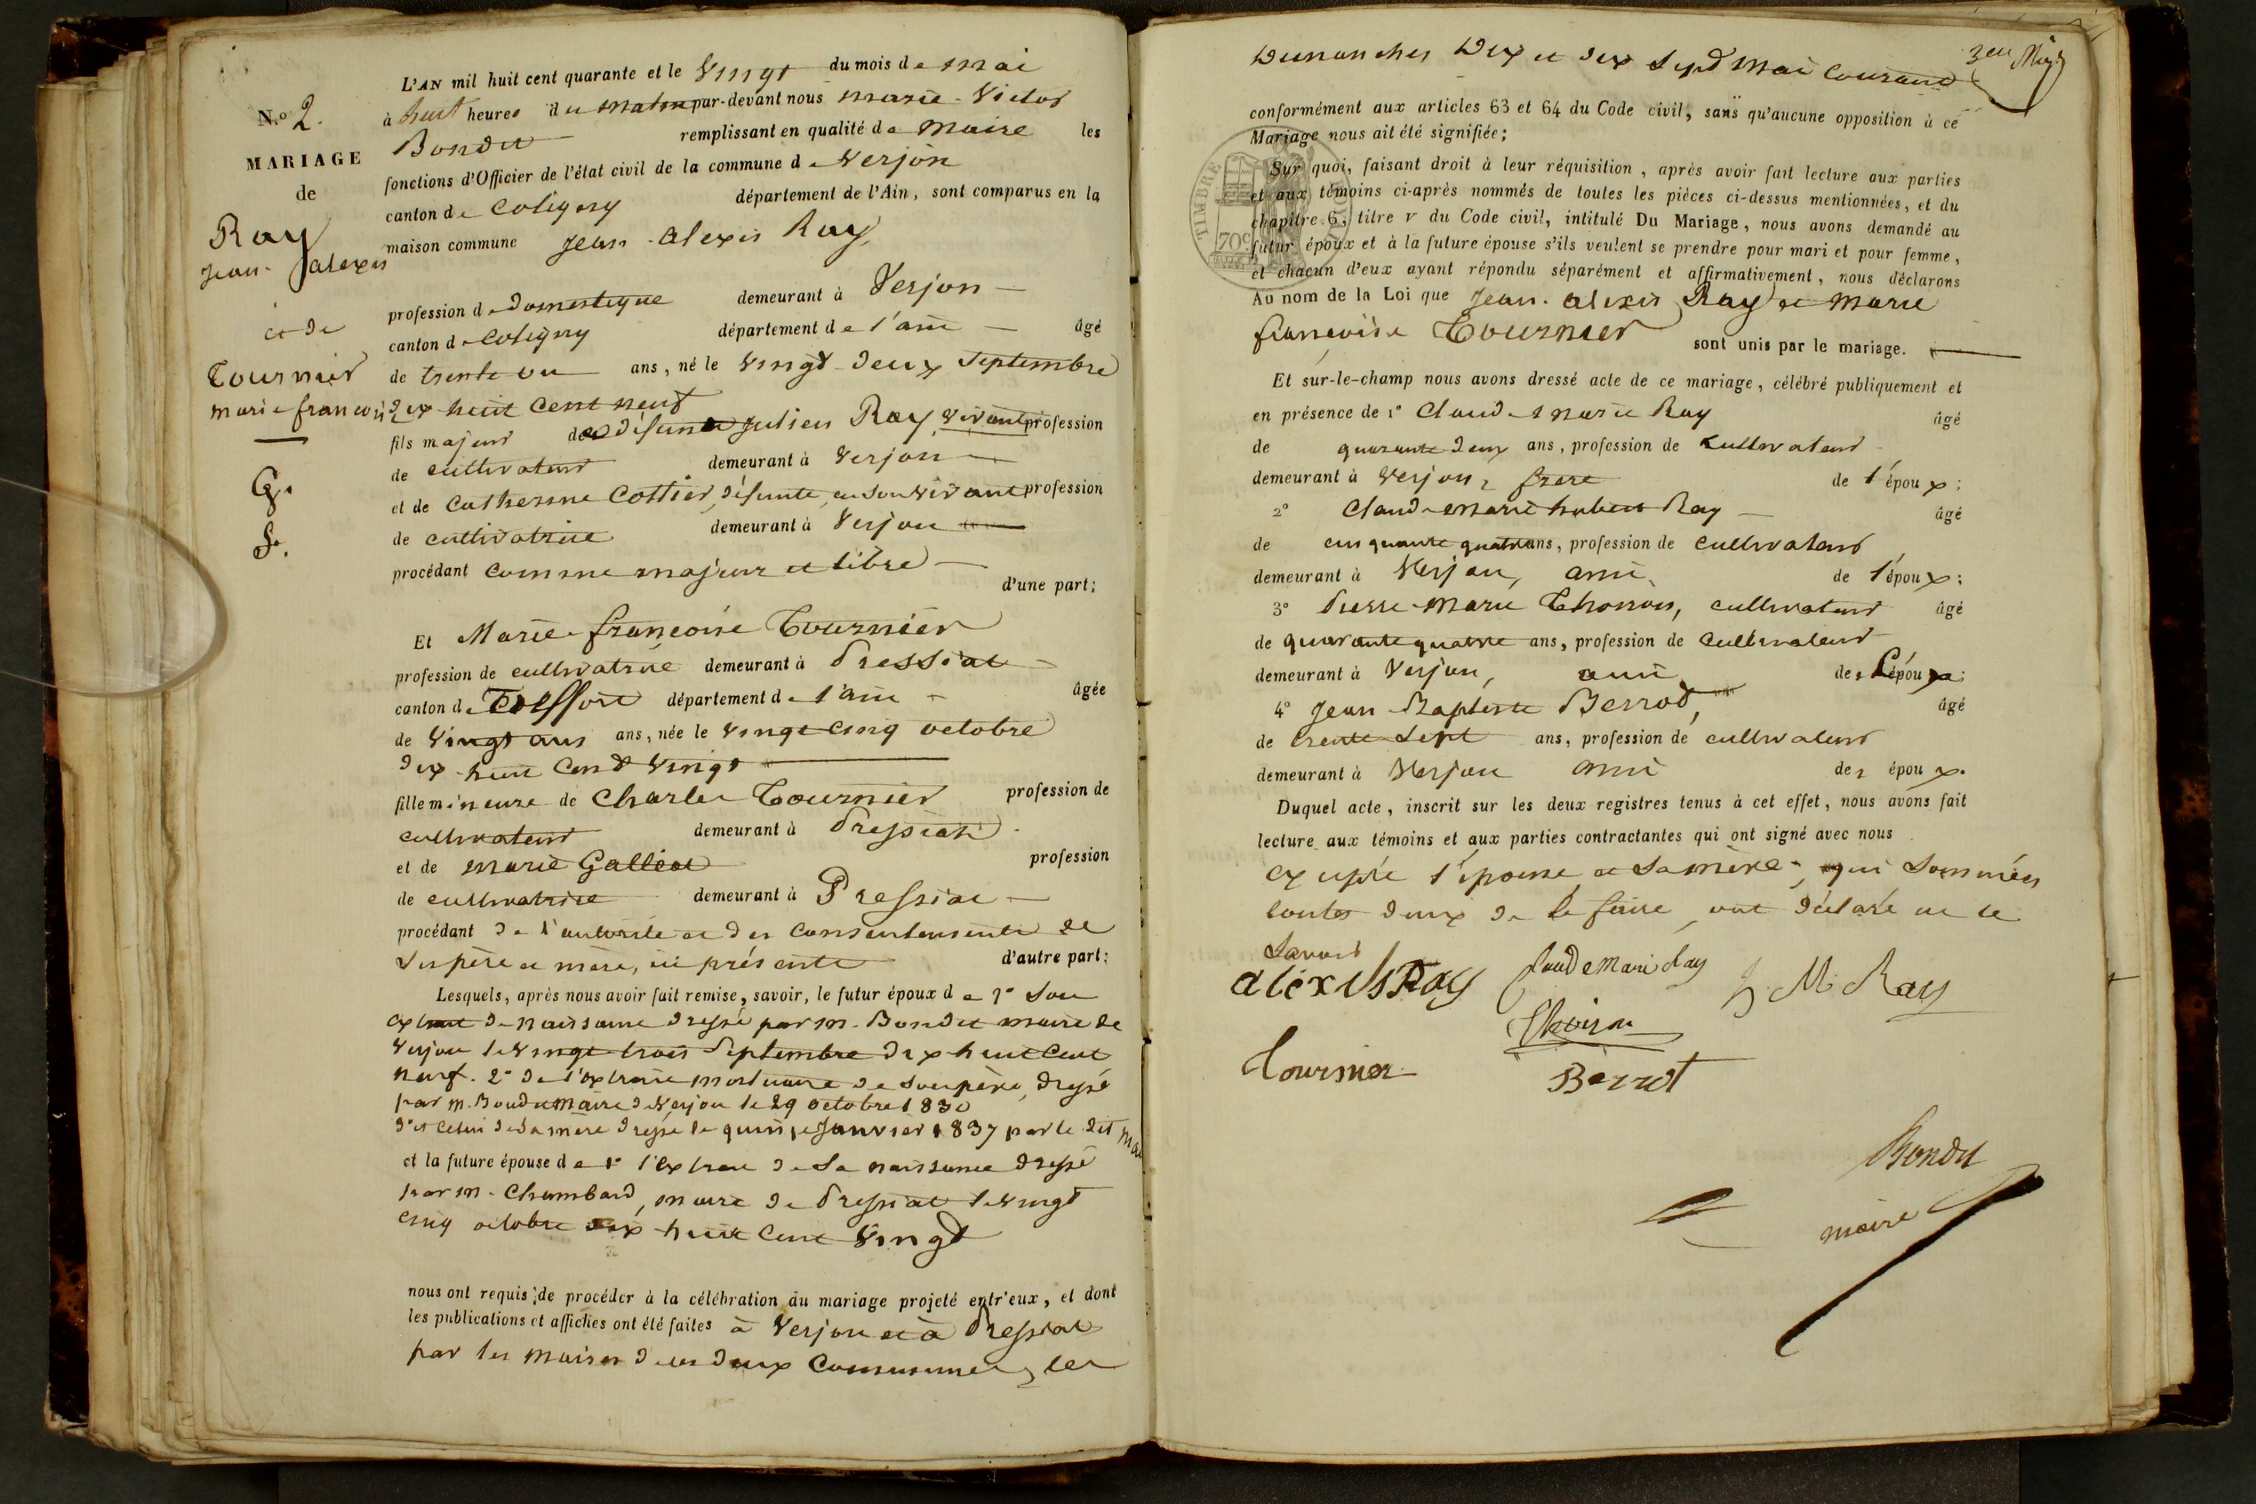 L'AN mil huit cent quarante et le Vingt du mois de mai
N.o 2.
à huit heures du matin par-devant nous marie-Victor
Bondet remplissant en qualité de maire les
MARIAGE
fonctions d'Officier de l'état civil de la commune de Verjon
de
canton de Coligny département de l'Ain, sont comparus en la
Ray
maison commune Jean-alexis Ray
Jean-alexis
profession de domestique demeurant à Verjon
et de
canton de Coligny département de l'ain âgé
Tournier
de trente un ans, né le Vingt-deux Septembre
marie francoise
dix huit cent neuf
fils majeur de défunt Julien Ray, vivant profession
de cultivateur demeurant à Verjon
G.
et de Catherine Cottier, défunte, en son vivant profession
S.
de cultivatrice demeurant à Verjon
procédant comme majeur et libre
d'une part;
Et Marie-françoise Tournier
profession de cultivatrice demeurant à Pressiat
canton de Treffort département de l'ain âgée
de Vingt ans ans, née le Vingt cinq octobre
dix-huit Cent Vingt
fille mineure de Charles Tournier profession de
cultivateur demeurant à Pressiat
et de marie Gallion profession
de cultivatrice demeurant à Pressiat
procédant de l'autorité et des consentements de
ses père et mère, ici présents d'autre part;
Lesquels, après nous avoir fait remise, savoir, le futur époux de 1° Son
extrait de naissance dressé par m. Bondet maire de
Verjon le Vingt-trois Septembre dix huit Cent
neuf. 2° de l'extrait mortuaire de son père, dressé
par m. Bondet maire de Verjon le 29 octobre 1830
3° et celui de sa mère dressé le quinze Janvier 1837 par le dit mai
et la future épouse de 1° l'extrait de sa naissance dressé
par m. Chambard, maire de Pressiat le Vingt
cinq octobre dix-huit Cent Vingt
nous ont requis de procéder à la célébration du mariage projeté entr'eux, et dont
les publications et affiches ont été faites à Verjon et à Pressiat
par les maires de ces deux Communes, les
Dimanches Dix et dix Sept Mai Courant
conformément aux articles 63 et 64 du Code civil, sans qu'aucune opposition à ce
Mariage nous ait été signifiée;
Sur quoi, faisant droit à leur réquisition, après avoir fait lecture aux parties
et aux témoins ci-après nommés de toutes les pièces ci-dessus mentionnées, et du
chapitre 6, titre v du Code civil, intitulé Du Mariage, nous avons demandé au
futur époux et à la future épouse s'ils veulent se prendre pour mari et pour femme,
et chacun d'eux ayant répondu séparément et affirmativement, nous déclarons
TIMBRE
70c
Au nom de la Loi que Jean-alexis Ray et marie
françoise Tournier sont unis par le mariage.
Et sur-le-champ nous avons dressé acte de ce mariage, célébré publiquement et
en présence de 1° Claude marie Ray âgé
de quarante deux ans, profession de Cultivateur
demeurant à Verjon, frere de l'époux;
2° Claude marie hubert Ray âgé
de cinquante quatre ans, profession de cultivateur
demeurant à Verjon, ami de l'époux;
3° Pierre-marie Thoiron, cultivateur âgé
de quarante quatre ans, profession de cultivateur
demeurant à Verjon, ami de l'époux;
4° Jean-Baptiste Berrod, âgé
de trente sept ans, profession de cultivateur
demeurant à Verjon ami de époux.
Duquel acte, inscrit sur les deux registres tenus à cet effet, nous avons fait
lecture aux témoins et aux parties contractantes qui ont signé avec nous
excepté l'épouse et sa mère, qui sommées
toutes deux de le faire, ont déclaré ne le
Savoir
alexis Ray Claude Marie Ray M Ray
Thoiron
Tournier Berrot
Bondet
maire